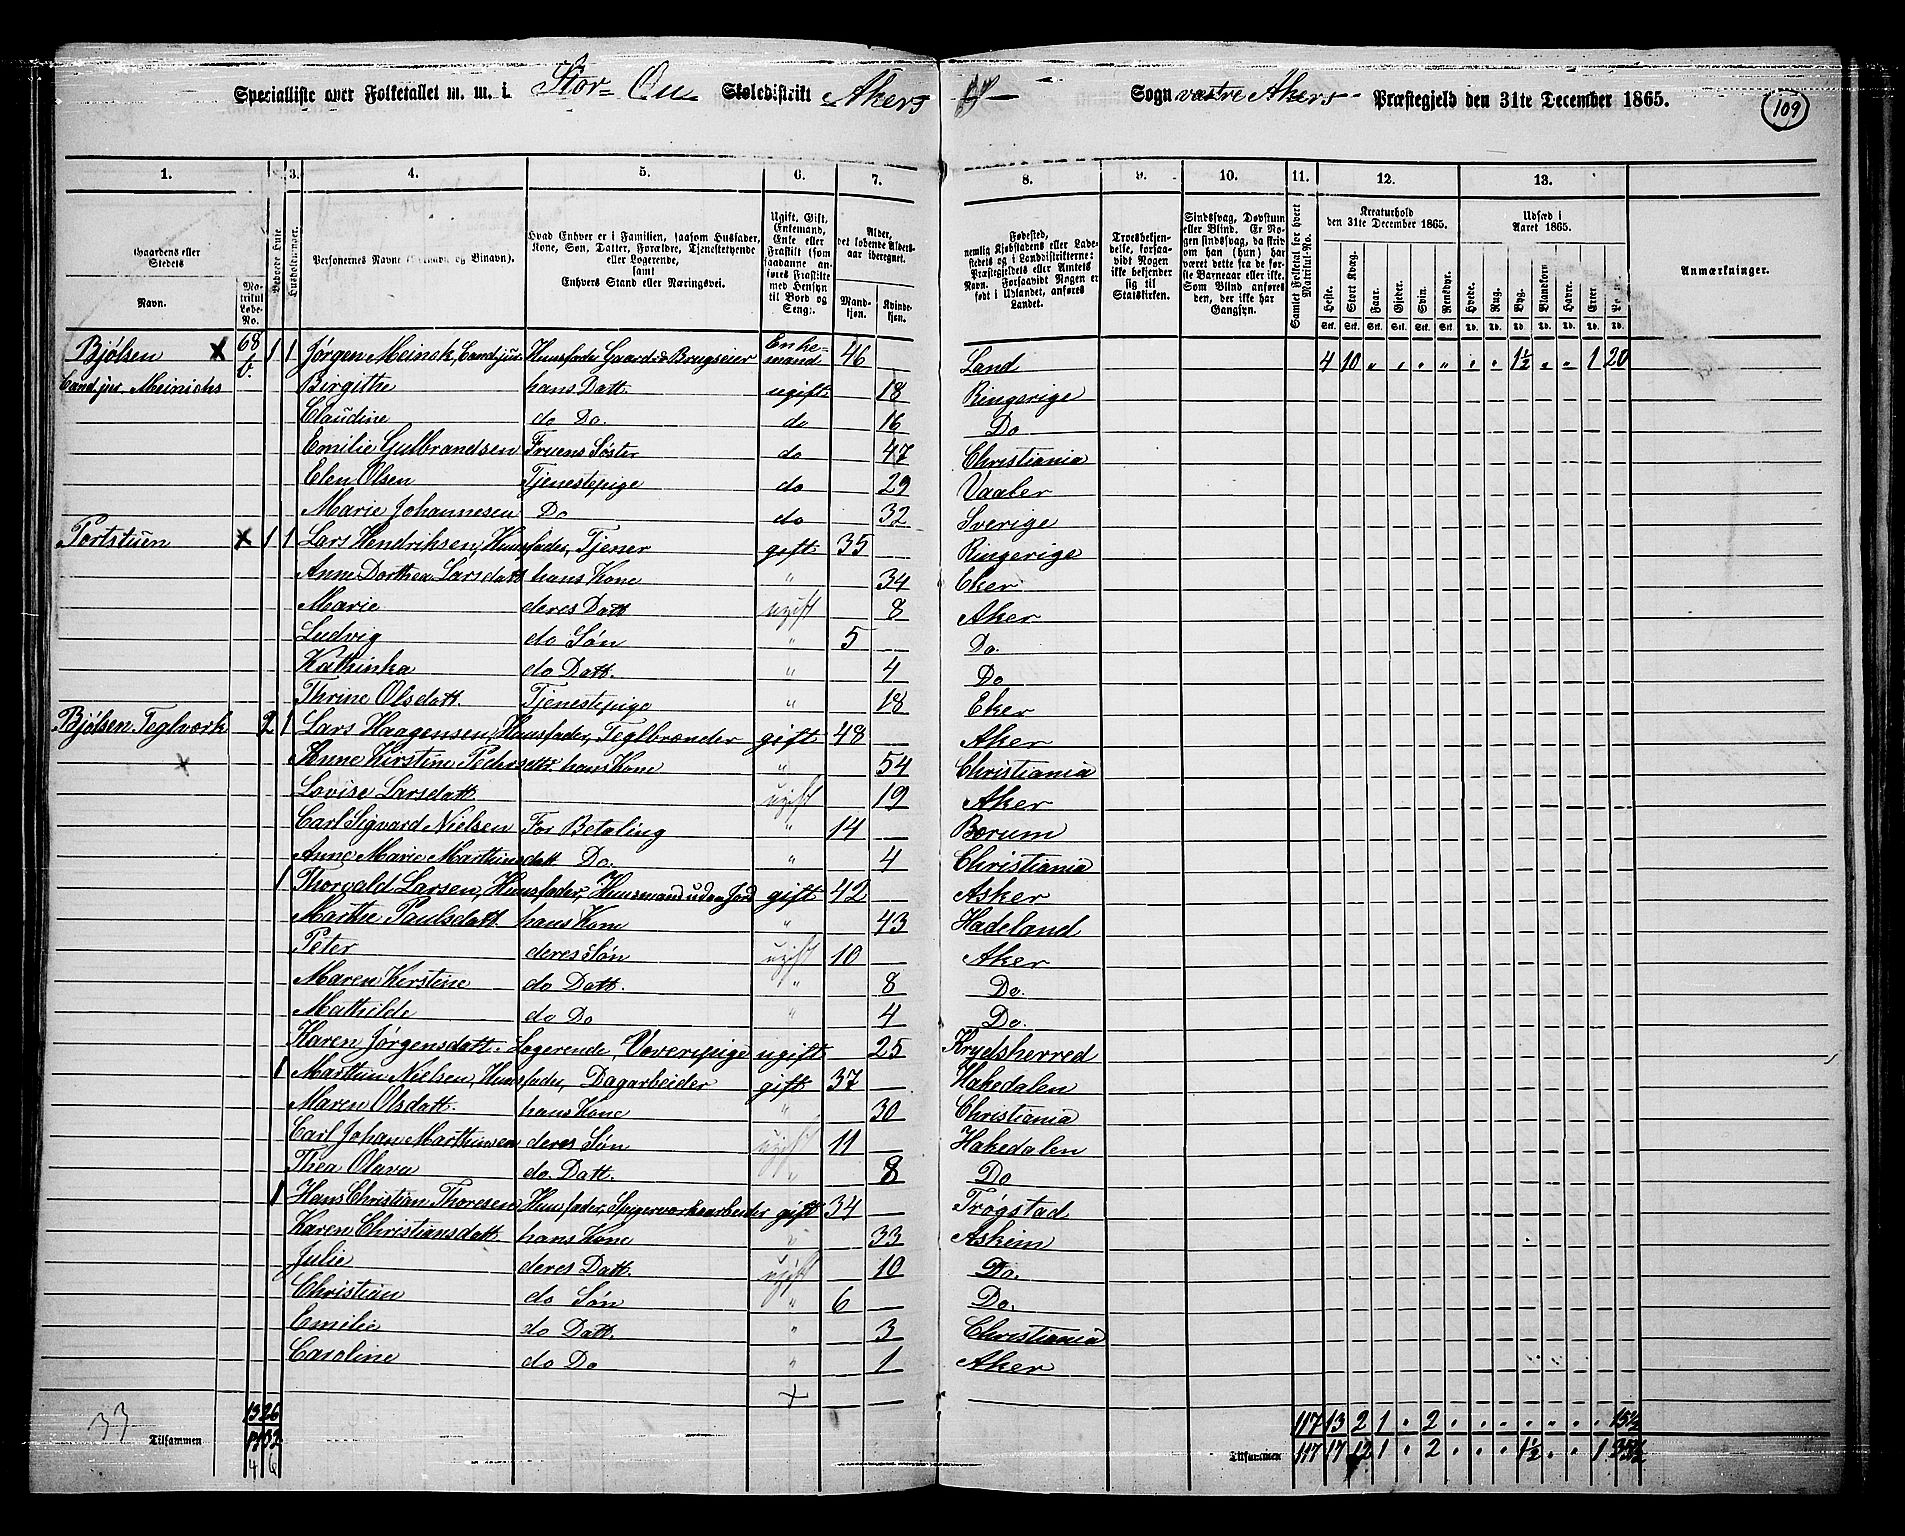 Specialliste over Folketallet m. m. i Stor- Ou Skoledistrikt Akers Sogn vestre Akers Præstegjeld den 31te December 1865.
109
1. 2. 3. 4. 5. 6. 7. 8. 9. 10. 11. 12. 13.
Gaardens eller Stedets Navn.
Matrikul Løbe-No.
Beboede Huse
Husholdninger.
Personernes Navne (Fornavn og Binavn).
Hvad Enhver er i Familien, saasom Husfader, Kone, Søn, Datter, Forældre, Tjenestetyende eller Logerende, samt Enhvers Stand eller Næringsvei.
Ugift, Gift, Enkemand, Enke eller Fraskilt (som saadanne anføres Fraskilte med Hensyn til Bord og Seng).
Alder, det løbende Alders-aar iberegnet.
Mandkjøn. Kvindekjøn.
Fødested, nemlig Kjøbstadens eller Ladestedets eller i Landdistrikterne: Præstegjeldets eller Amtets Navn. Forsaavidt Nogen er født i Udlandet, anføres Landet.
Troesbekjendelse, forsaavidt Nogen ikke bekjender sig til Statskirken.
Sindssvag, Døvstum eller Blind. Er Nogen sindssvag, da skriv om han (hun) har været dette fra de første Barneaar eller ikke. Som Blind anføres den, der ikke har Gangsyn.
Samlet Folketal for hvert Matrikul-No.
Kreaturhold den 31te December 1865.
Heste. Stort Kvæg. Faar. Gjeder. Svin. Rensdyr.
Udsæd i Aaret 1865.
Hvede. Rug. Byg. Blandkorn Havre. Erter.
Anmærkninger.
Bjølsen 68 b. 1 1 Jørgen Meinck, Cand. jur. Husfader Gaard & Brugseier Enkemand 46 Land 4 10 " " " " " " 1½ " " 1 20
Cand. jur. Meinichs Birgithe hans Datt ugift 18 Ringerige
Claudine do Do. do 16 Do
Emilie Gulbrandsen Fruens Søster do 47 Christiania
Elen Olsen Tjenestepige do 29 Vaaler
Marie Johannesen Do do 32 Sverige
Portstuen 1 1 Lars Hendriksen, Husfader, Tjener gift 35 Ringerige
Anne Dorthea Larsdatt hans Kone " 34 Eker
Marie deres Datt ugift 8 Aker
Ludvig do Søn " 5 Do.
Kathinka do Datt. " 4 Do
Thrine Olsdatt. Tjenestepige " 18 Eker
Bjølsen Teglværk 2 1 Lars Haagensen, Husfader, Teglbrænder gift 48 Aker
Anne Kirstine Pedersdtt. hans Kone " 54 Christiania
Lovise Larsdatt ugift 19 Aker
Carl Sigvard Nielsen For Betaling " 14 Bærum
Anne Marie Mathinsdatt Do. " 4 Christiania
1 Thorvald Larsen, Husfader, Husmand uden Jord gift 42 Asker
Marthe Paulsdatt. hans Kone " 43 Hadeland
Peter deres Søn ugift 10 Aker
Maren Kerstine do Datt. " 8 Do.
Mathilde do Do " 4 Do.
Karen Jørgensdatt. Logerende, Væverpige ugift 25 Krydsherred
1 Martin Nielsen, Husfader, Dagarbeider gift 37 Hakedalen
Maren Olsdatt. hans Kone " 30 Christiania
Carl Johan Marthinsen deres Søn ugift 11 Hakedalen
Thea Olava do. Datt. " 8 Do
1 Hans Christian Thoresen Husfader, Spigerværksarbeider gift 34 Trøgstad
Karen Christiansdatt. hans Kone " 33 Askim
Julie deres Datt. ugift 10 Do.
Christian do Søn " 6 Do.
Emilie do Datt. " 3 Christiania
Caroline do Do " 1 Aker
33 Tilsammen 13 26
4 6
117 13 2 1 " 2 " " " " " " " 15½
Tilsammen 117 17 12 1 " 2 " " " 1½ " " 1 35½